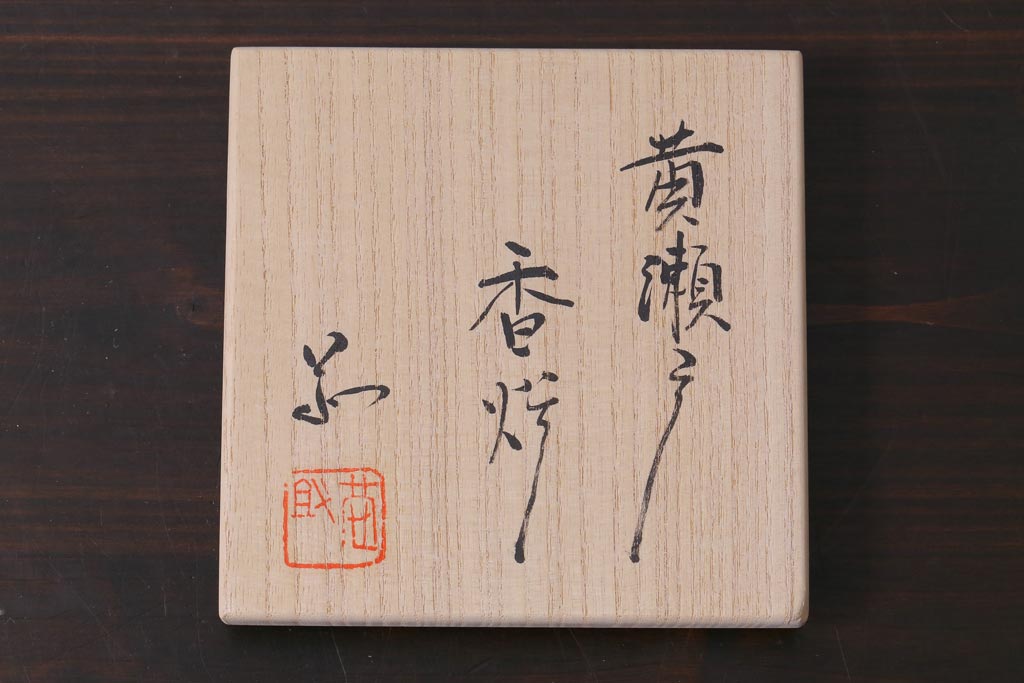 黄瀬戸
香炉